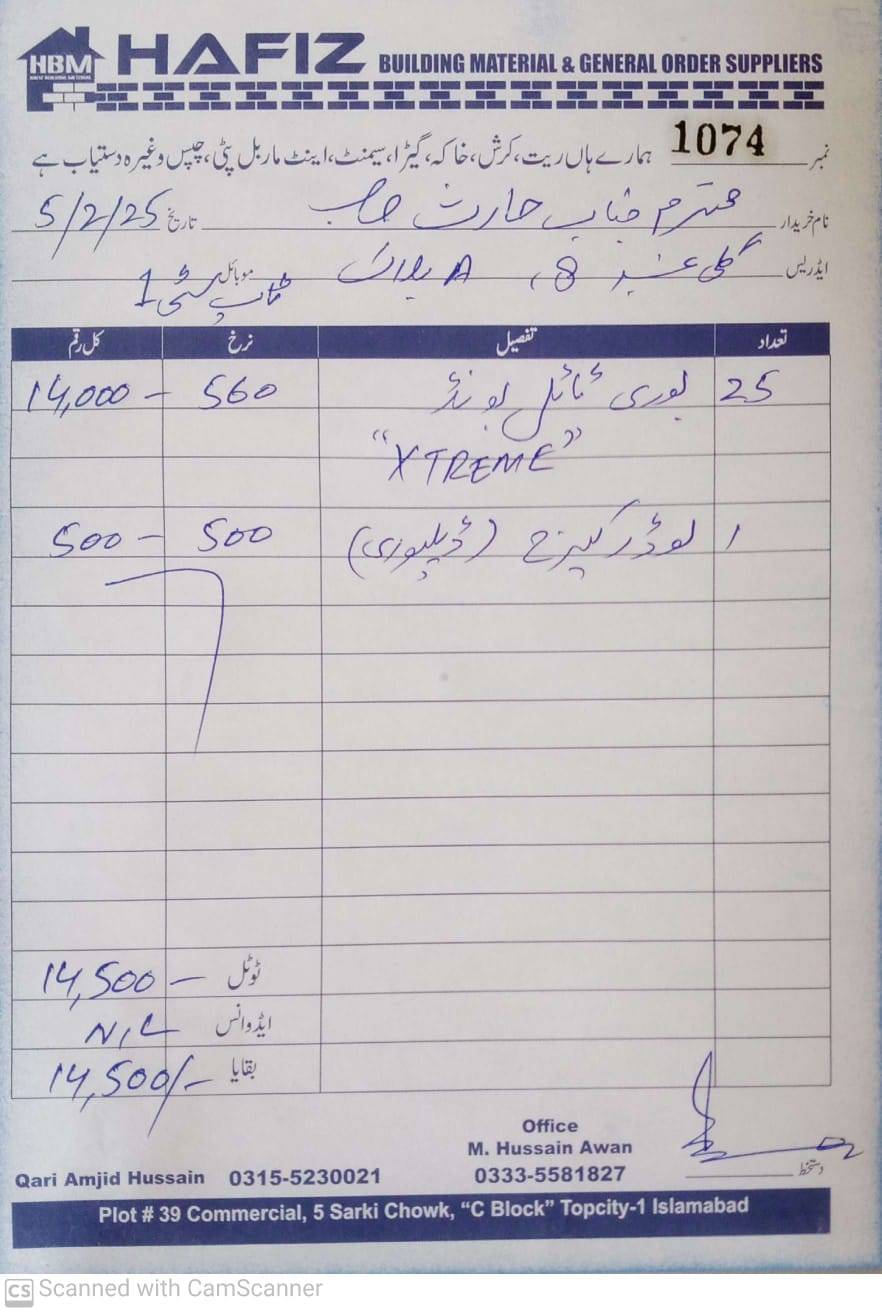 HBM
HAFIZ BUILDING MATERIAL & GENERAL ORDER SUPPLIERS
نمبر 1074 ہمارے ہاں ریت، کرش، خاکہ، گیڑا، سیمنٹ، اینٹ ماربل پٹی، چپس وغیرہ دستیاب ہے
نام خریدار محترم جناب حارث صاحب تاریخ 5/2/25
ایڈریس گلی نمبر 8، A بلاک موبائل
ٹاپ سٹی 1
تعداد تفصیل نرخ کل رقم
25 بوری ٹائل بونڈ 560 14,000 –
"XTREME"
1 لوڈر کیرج (ڈیلیوری) 500 500 –
ٹوٹل 14,500 –
ایڈوانس NIL
بقایا 14,500/-
Office
M. Hussain Awan
Qari Amjid Hussain 0315-5230021 0333-5581827 دستخط
Plot # 39 Commercial, 5 Sarki Chowk, “C Block” Topcity-1 Islamabad
CS Scanned with CamScanner